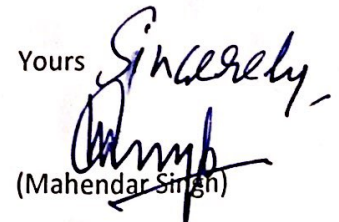 Yours Sincerely,
(Mahendar Singh)